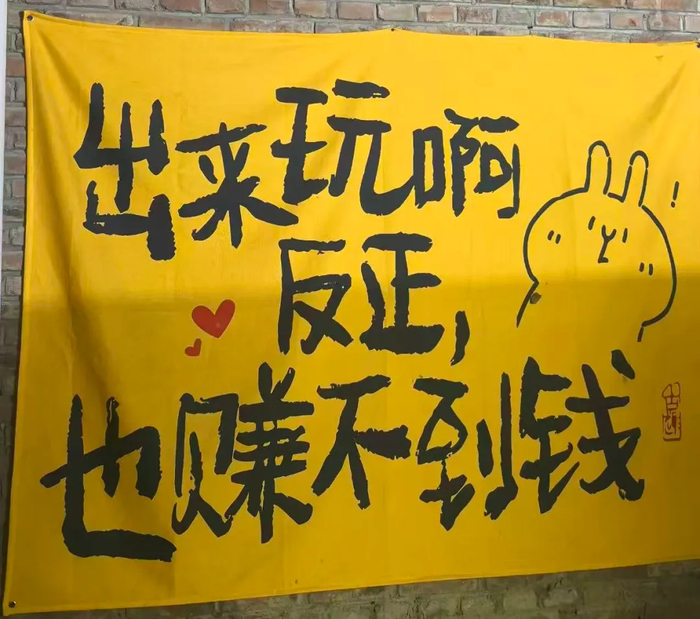 出来玩啊
反正,
也赚不到钱
!